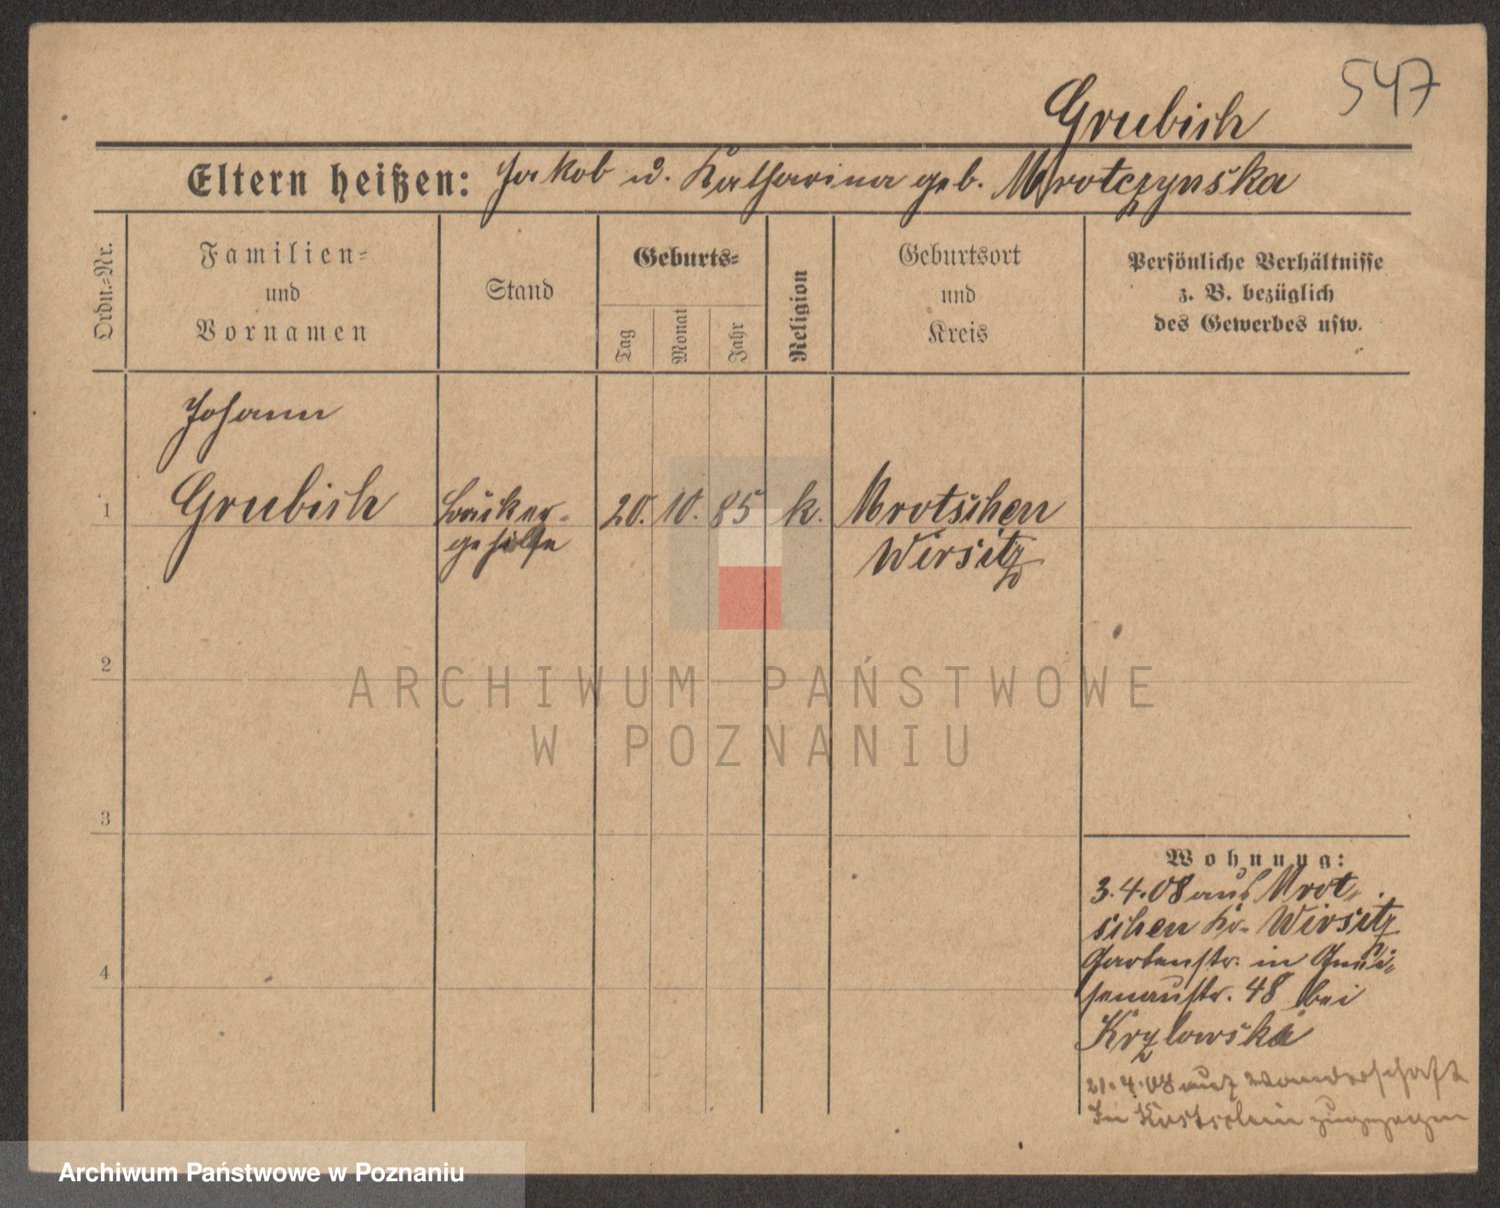 547
Grubich
Eltern heißen: Jakob u. Katharina geb. Mrotczynska
Ordn.-Nr.
Familien-
und
Vornamen
Stand
Geburts-
Tag
Monat
Jahr
Religion
Geburtsort
und
Kreis
Persönliche Verhältnisse
z. B. bezüglich
des Gewerbes usw.
Johann
1 Grubich Bäcker- 20. 10. 85 k. Mrotschen
gehilfe Wirsitz
2
ARCHIWUM PAŃSTWOWE
W POZNANIU
3
Wohnung:
3.4.08 aus Mrot-
schen Kr. Wirsitz
Gartenstr. in Gnei-
senaustr. 48 bei
4
Krzlowska
21.4.08 auf Wanderschaft
In zugezogen
Archiwum Państwowe w Poznaniu